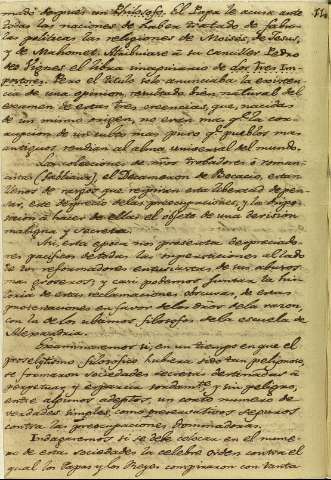 un Philosofo. El Papa le acusa ante
todas las naciones de haber tratado de fabu-
las politicas las religiones de Moisés, de Jesus,
y de Mahomet. Atribuiase á su canciller Pedro
de Vignes el libro imaginario de los Tres Im-
postores. Pero el titulo solo anunciaba la existen-
cia de una opinion, resultado bien natural del
examen de estas tres creencias, que, nacidas
de un mismo origen, no eran mas que la co-
rrupcion de un culto mas puro que pueblos mas
antiguos rendian al alma universal del mundo.
Las colecciones de
el Decameron de Bocacio, estan
llenos de rasgos que respiran esta libertad de pen-
sar, este desprecio de las preocupaciones, y la dispo-
sicion á hacer de ellas el objeto de una derision
maligna y secreta.
Asi, esta epoca nos presenta despreciado-
res pacificos de todas las supersticiones al lado
de los reformadores entusiastas de sus abusos
mas groseros; y casi podemos juntar la his-
toria de estas reclamaciones obscuras, de estas
protestaciones en favor de los dros de la razon,
á la de los ultimos filosofos de la escuela de
Alexandria.
Examinaremos si, en un tiempo en que el
proselytismo filosofico hubiera sido tan peligroso,
se formaron sociedades secretas destinadas á
perpetuar y esparcir sordamte. y sin peligro,
entre algunos adeptos, un corto numero de
verdades simples, como preservativos seguros
contra las preocupaciones dominadoras.
Indagaremos si se debe colocar en el nume-
ro de estas sociedades la celebre orden contra el
qual los Papas y los Reyes conspiraron con tanta